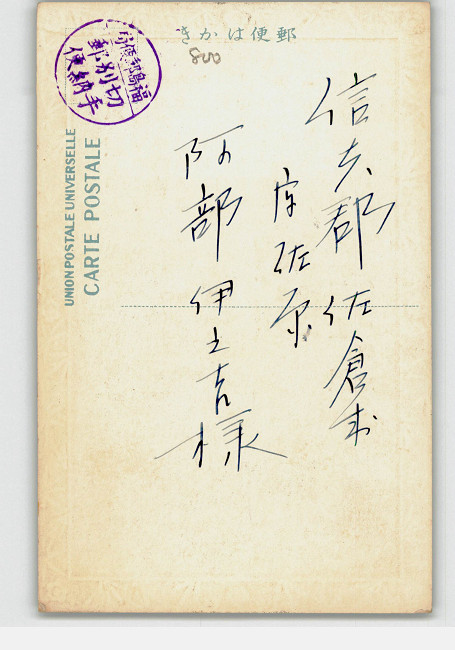 きかは便郵
800
福島郵便局
切別郵
手納便
UNION POSTALE UNIVERSELLE
CARTE POSTALE
信夫郡佐倉村
字佐原
阿部伊之吉様